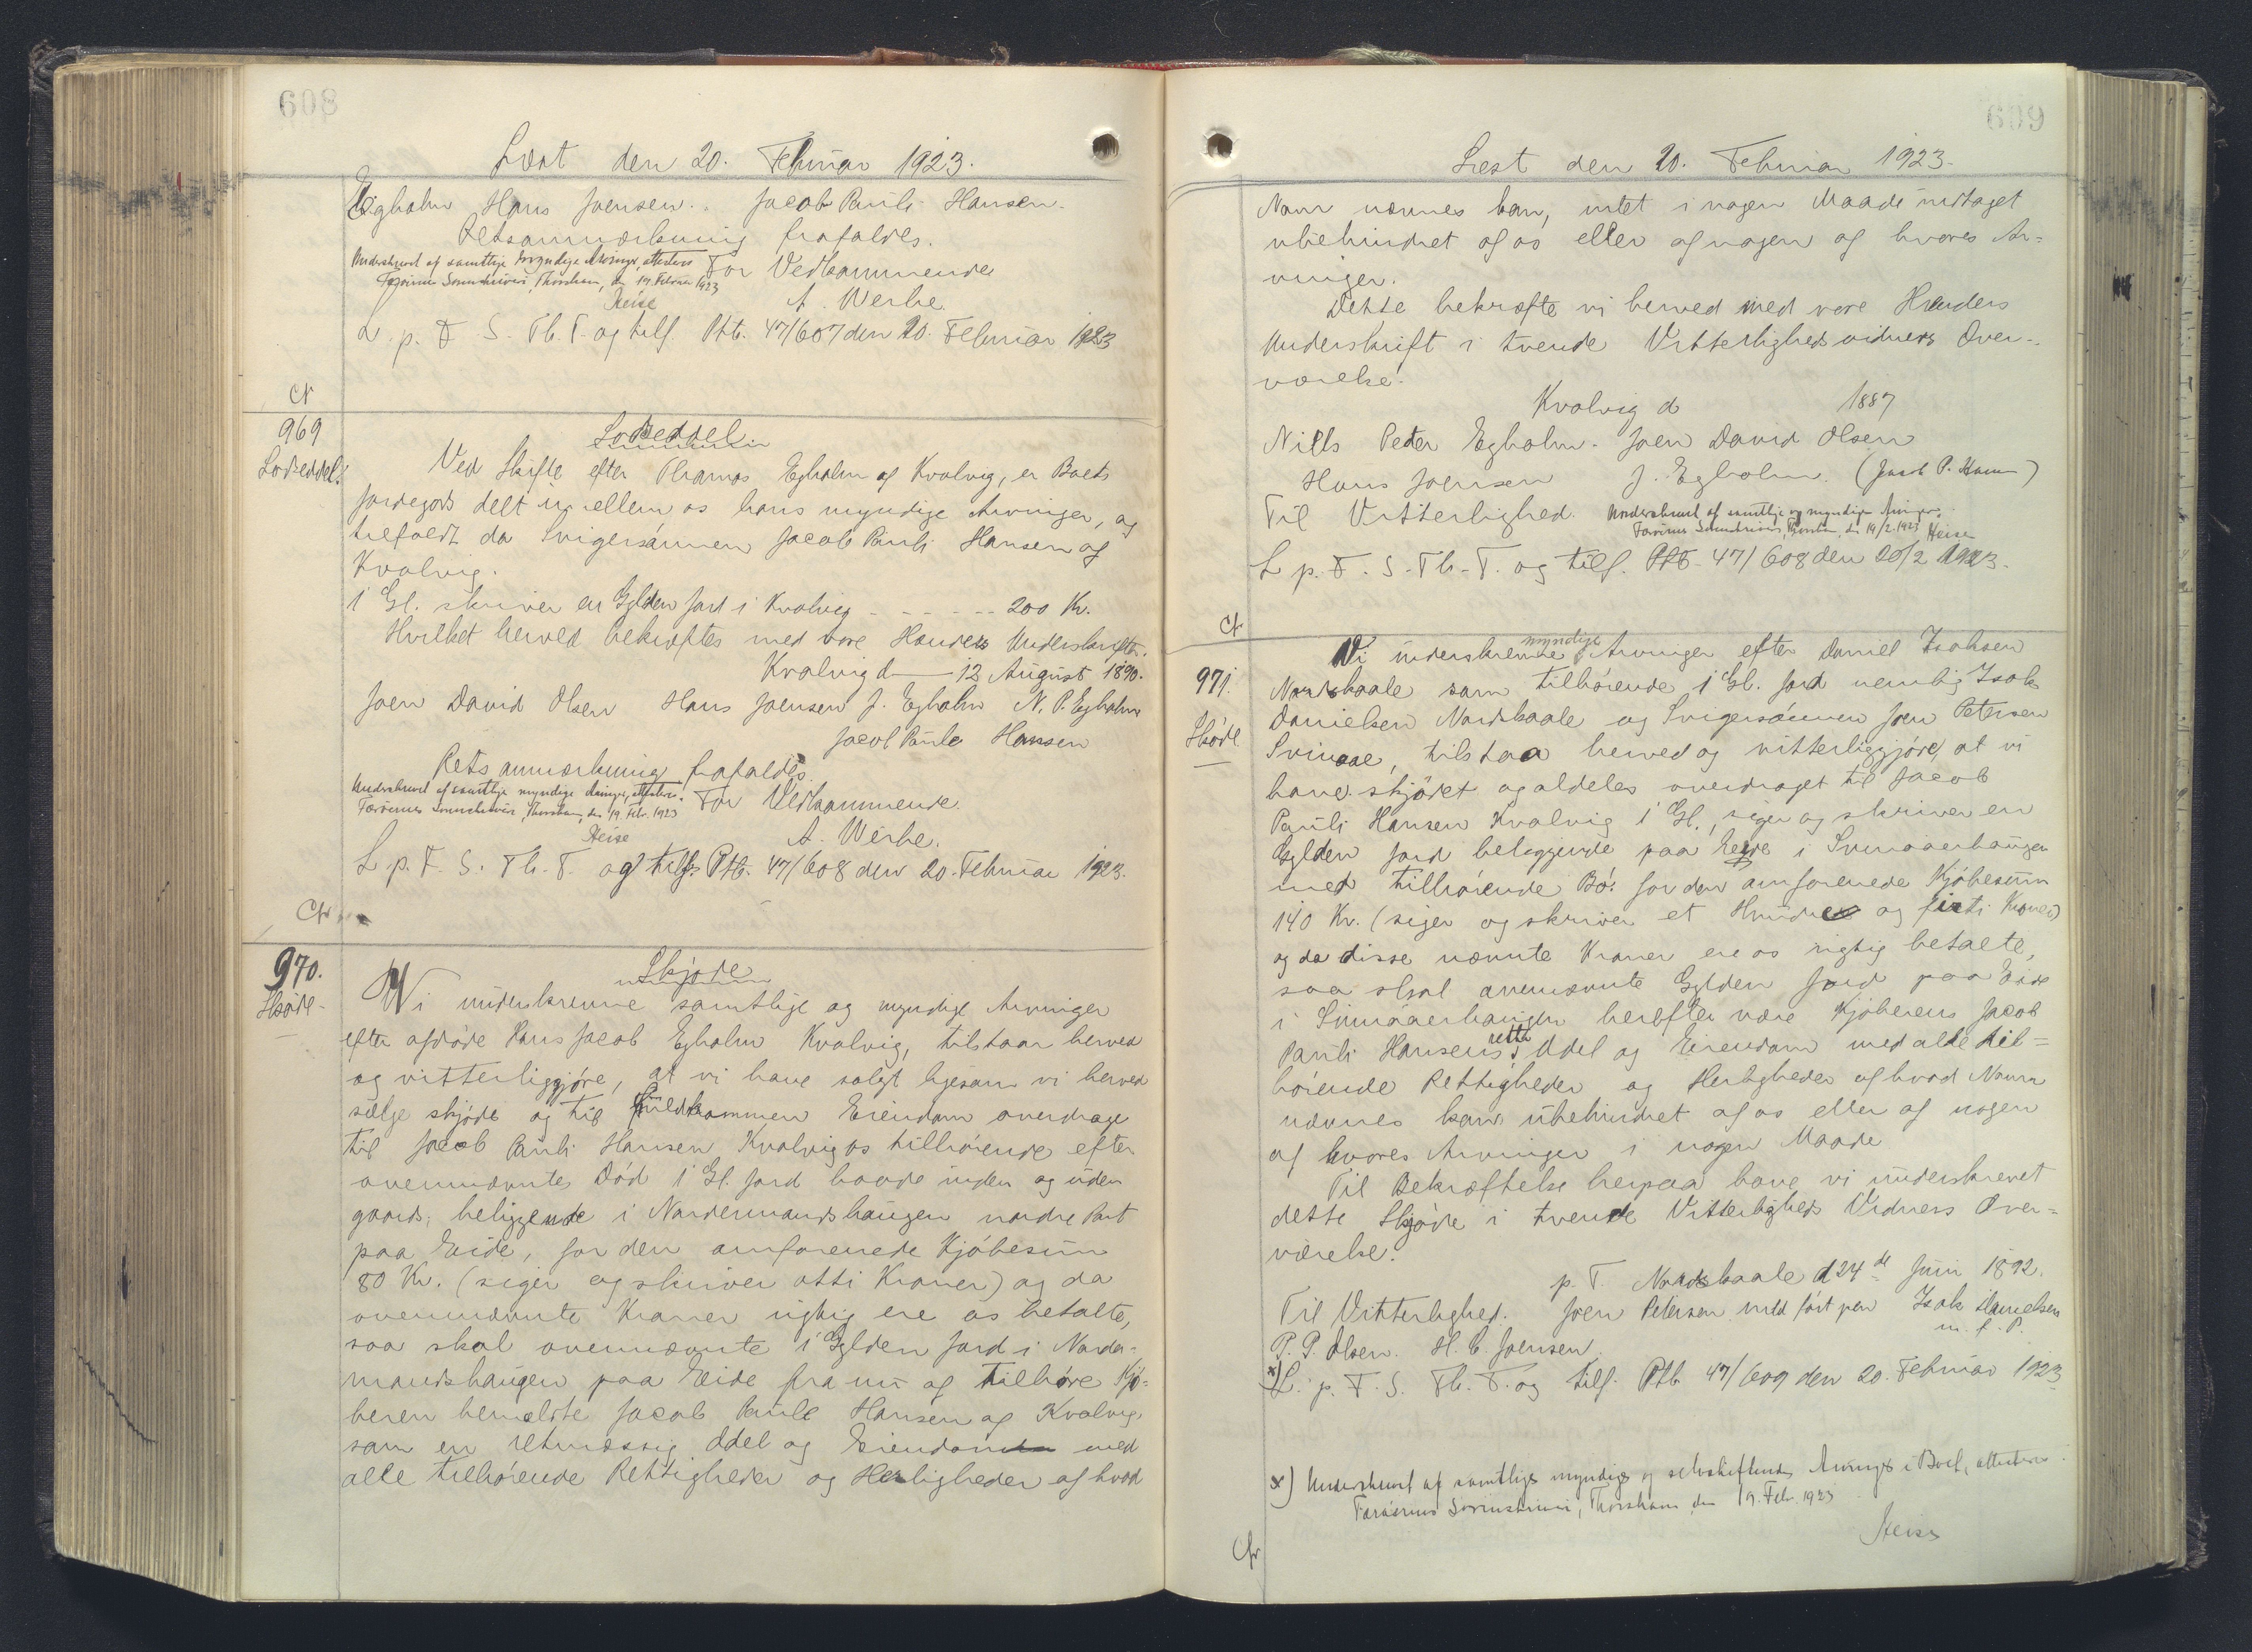 608
Læst den 20. Februar 1923.
Egholm Hans Joensen. Jacob Pauli Hansen.
Retsanmærkning frafaldes.
Underskrevet af samtlige myndige Arvinger, attesteres
For Vedkommende
Færöernes Sorenskriveri, Thorshavn, den 19. Februar 1923
Heise
A. Werbe.
L. p. F. S. Th. T. og tilf. Ptb. 47/607 den 20. Februar 1923
Cf
969
Lodseddel.
Lodseddel
Ved Skifte efter Thomas Egholm af Kvalvig, er Boets
Jordegods delt imellem os hans myndige Arvinger, og
tilfaldt da Svigersönnen Jacob Pauli Hansen af
Kvalvig.
1 Gl. skriver en Gylden Jord i Kvalvig - - - - - - 200 Kr.
Hvilket herved bekræftes med vore Hænders Underskrifter.
Kvalvig d — 12 August 1890.
Joen David Olsen Hans Joensen J. Egholm N. P. Egholm
Jacob Paule Hansen
Retsanmærkning frafaldes.
Underskrevet af samtlige myndige Arvinger, attesteres.
For Vedkommende.
Færöernes Sorenskriveri, Thorshavn, den 19. Febr. 1923
Heise
A. Werbe.
L p. F. S. Th. T. og tilf. Ptb. 47/608 den 20. Februar 1923.
Cf
970.
Skøde
Skjøde
Vi underskrevne samtlige og myndige Arvinger
efter afdøde Hans Jacob Egholm Kvalvig, tilstaar herved
og vitterliggjøre, at vi have solgt ligesom vi herved
sælge skjøde og til fuldkommen Eiendom overdrage
til Jacob Pauli Hansen Kvalvig os tilhörende efter
ovennævntes Död 1 Gl. Jord baade inden og uden
gaards, beliggende i Nordermandshaugen nordre Part
paa Eide, for den omforenede Kjöbesum
80 Kr. (siger og skriver otti Kroner) og da
ovennævnte Kroner rigtig ere os betalte,
saa skal ovennævnte 1 Gylden Jord i Norder-
mandshaugen paa Eide fra nu af tilhøre Kjö-
beren bemeldte Jacob Paule Hansen af Kvalvig,
som en retmæssig Odel og Eiendom med
alle tilhörende Rettigheder og Herligheder af hvad
609
Læst den 20. Februar 1923.
Navn nævnes kan, intet i nogen Maade undtaget
ubehindret af os eller af nogen af hvores Ar-
vinger.
Dette bekræfte vi herved med vore Hænders
Underskrift i tvende Vitterligheds vidners Over-
værelse.
Kvalvig d 1887
Niels Peder Egholm. Joen David Olsen
Hans Joensen J. Egholm. (Jacob P. Hansen)
Til Vitterlighed. Underskrevet af samtlige og myndige Arvinger.
Færöernes Sorenskriveri, Thorshavn, d. 19/2. 1923 Heise
L p. F. S. Th. T. og tilf. Ptb. 47/608 den 20/2 1923.
Cf
971.
Skøde
Vi underskrevne myndige Arvinger efter Daniel Isaksen
Nordskaale som tilhörende 1 Gl. Jord nemlig Isak
Danielsen Nordskaale og Svigersönnen Joen Petersen
Svinaae, tilstaa herved og vitterliggjöre, at vi
have skjödet og aldeles overdraget til Jacob
Pauli Hansen Kvalvig 1 Gl., siger og skriver en
Gylden Jord beliggende paa Eide i Svinaaerhaugen
med tilhörende Bö. for den omforenede Kjöbesum
140 Kr. (siger og skriver et Hundre og firti Kroner)
og da disse nævnte Kroner ere os rigtig betalte,
saa skal ovennævnte Gylden Jord paa Eide
i Svinaaerhaugen herefter være Kjöberens Jacob
Pauli Hansens rette Odel og Eiendom med alle til-
hörende Rettigheder og Herligheder af hvad Navn
nævnes kan ubehindret af os eller af nogen
af hvores Arvinger i nogen Maade
Til Bekræftelse herpaa have vi underskrevet
dette Skjöde i tvende Vitterligheds Vidners Over-
værelse.
p. T. Nordskaale d 24de Juni 1892.
Til Vitterlighed. Joen Petersen med fört pen Isak Danielsen
m. f. P.
P. P. Olsen. H. C. Joensen.
x) L. p. F. S. Th. T. og tilf. Ptb. 47/609 den 20. Februar 1923
x) Underskrevet af samtlige myndige og selvskiftende Arvinger i Boet, attesteres.
Færöernes Sorenskriveri, Thorshavn, den 19. Febr. 1923
Heise
Cf